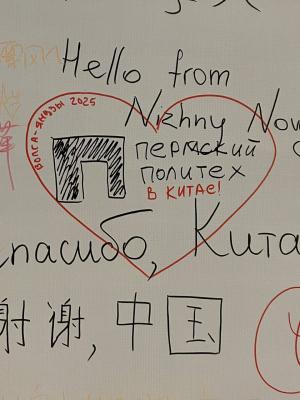 Hello from
Nizhny Nov
ВОЛГА-ЯНЦЗЫ 2025
П
ПЕРМСКИЙ
ПОЛИТЕХ
В КИТАЕ!
Спасибо, Кита
谢谢, 中国